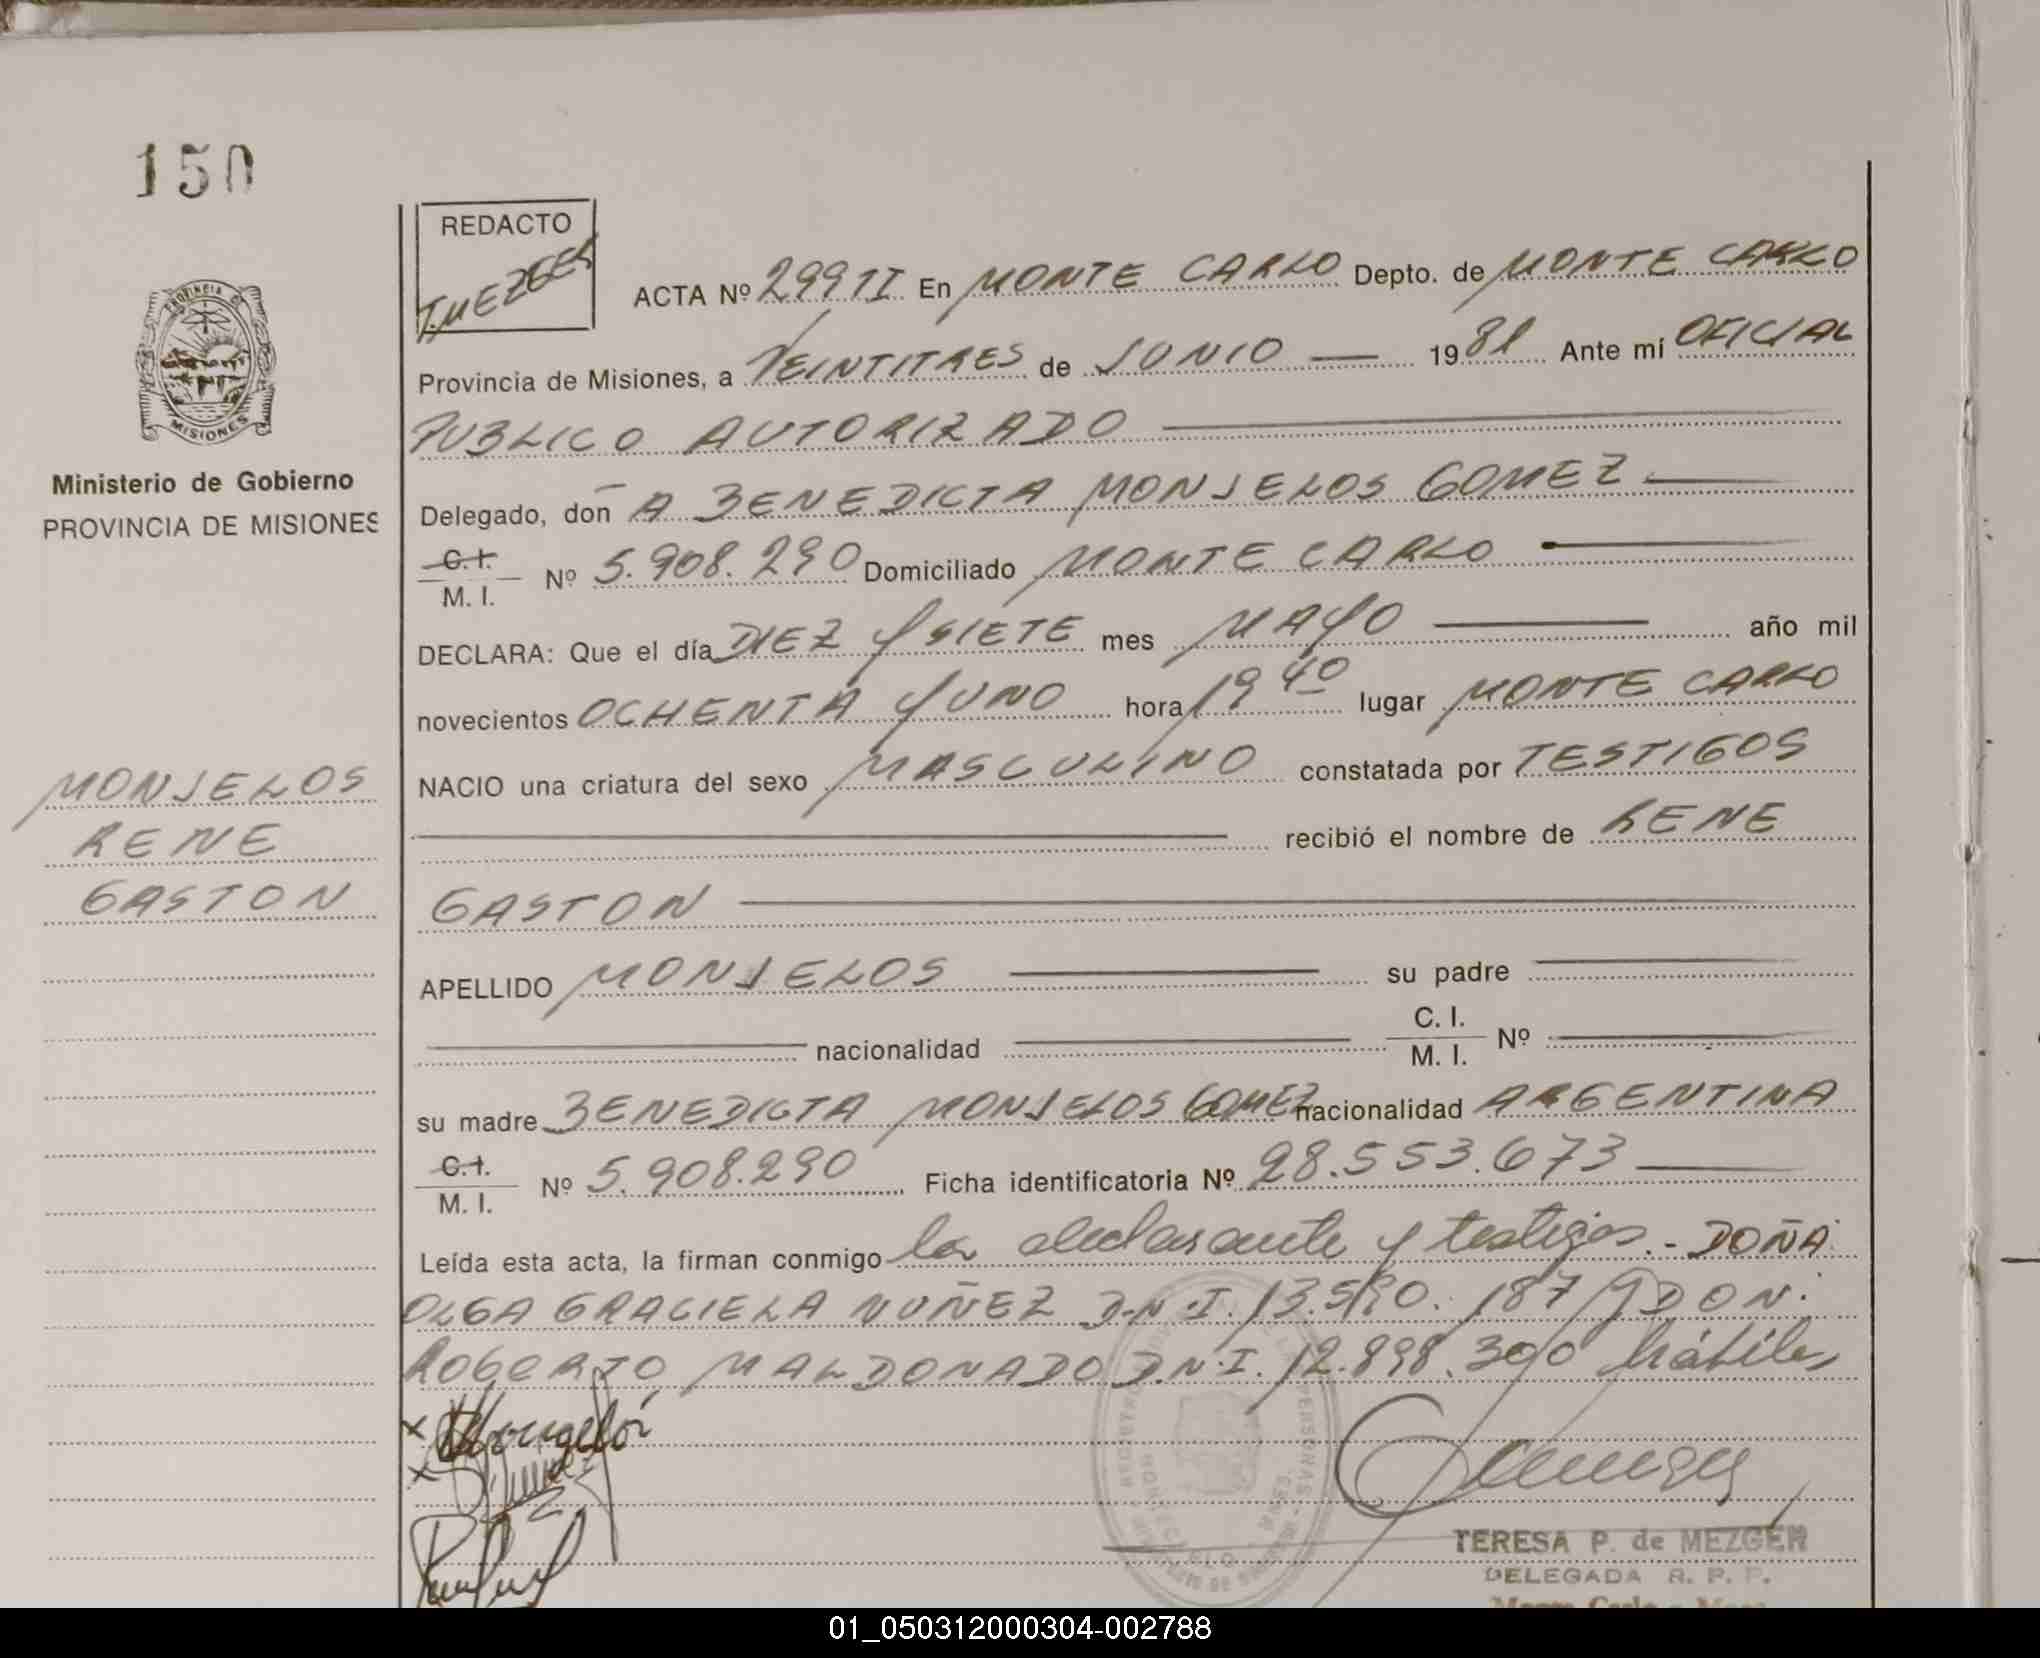 150
REDACTO
T. MEZGER
ACTA Nº 299 TI En MONTE CARLO Depto. de MONTE CARLO
Provincia de Misiones, a VEINTITRES de JUNIO 1981 Ante mí OFICIAL
PUBLICO AUTORIZADO
Delegado, don A BENEDICTA MONJELOS GOMEZ
C.I. M. I. Nº 5.908.290 Domiciliado MONTE CARLO
DECLARA: Que el día DIEZ Y SIETE mes MAYO año mil
novecientos OCHENTA Y UNO hora 19 40 lugar MONTE CARLO
NACIO una criatura del sexo MASCULINO constatada por TESTIGOS
recibió el nombre de RENE
GASTON
APELLIDO MONJELOS su padre
nacionalidad C. I. M. I. Nº
su madre BENEDICTA MONJELOS GOMEZ nacionalidad ARGENTINA
C.I. M. I. Nº 5.908.290 Ficha identificatoria Nº 28.553.673
Leída esta acta, la firman conmigo la declarante y testigos.- DOÑA
OLGA GRACIELA NUÑEZ D.N.I. 13.590.187 y DON
ROBERTO MALDONADO D.N.I. 12.898.300 hábiles
TERESA P. de MEZGER
DELEGADA R. P. P.
PROVINCIA DE
MISIONES
Ministerio de Gobierno
PROVINCIA DE MISIONES
MONJELOS
RENE
GASTON
01_050312000304-002788